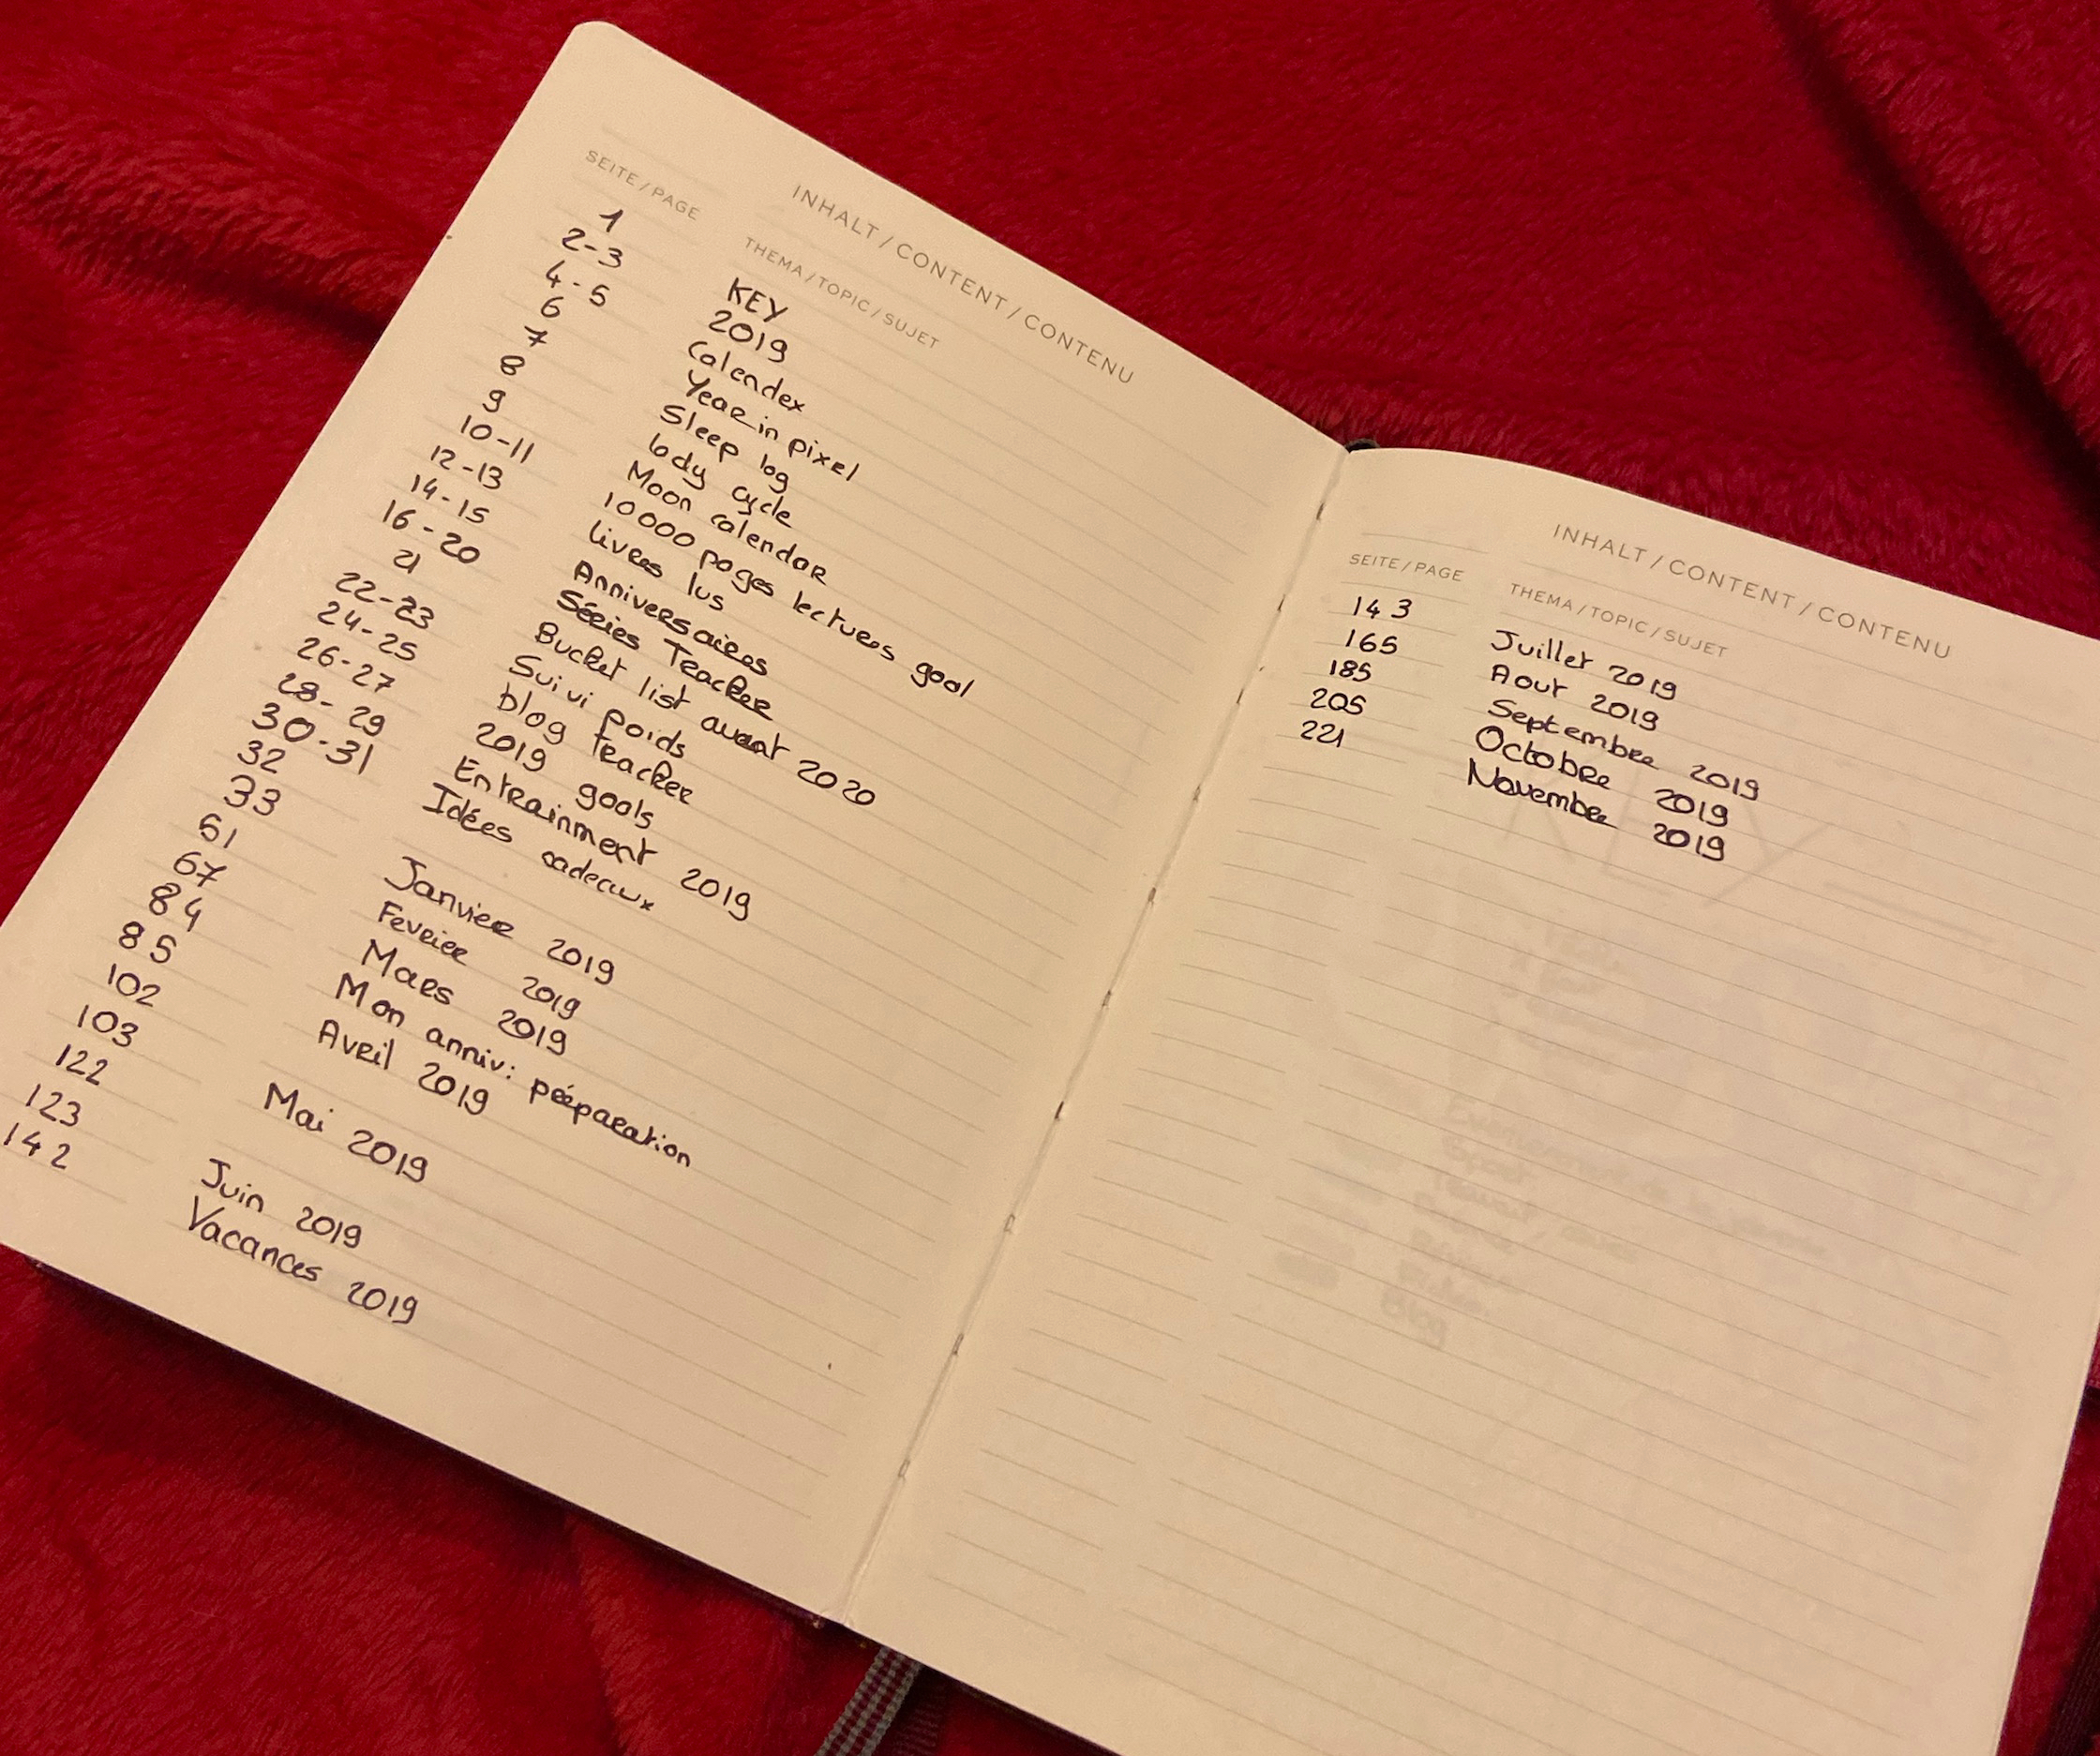 INHALT / CONTENT / CONTENU
SEITE / PAGE THEMA / TOPIC / SUJET
1 KEY
2-3 2019
4-5 Calendex
6 Year in pixel
7 Sleep log
8 body cycle
9 Moon calendar
10-11 10000 pages lectures goal
12-13 livres lus
14-15 Anniversaires
16-20 Séries Tracker
21 Bucket list avant 2020
22-23 Suivi poids
24-25 blog tracker
26-27 2019 goals
28-29 Entrainment 2019
30-31 Idées cadeaux
32
33 Janvier 2019
51 Fevrier 2019
67 Mars 2019
84 Mon anniv: préparation
85 Avril 2019
102
103 Mai 2019
122
123 Juin 2019
142 Vacances 2019
INHALT / CONTENT / CONTENU
SEITE / PAGE THEMA / TOPIC / SUJET
143 Juillet 2019
165 Aout 2019
185 Septembre 2019
205 Octobre 2019
221 Novembre 2019